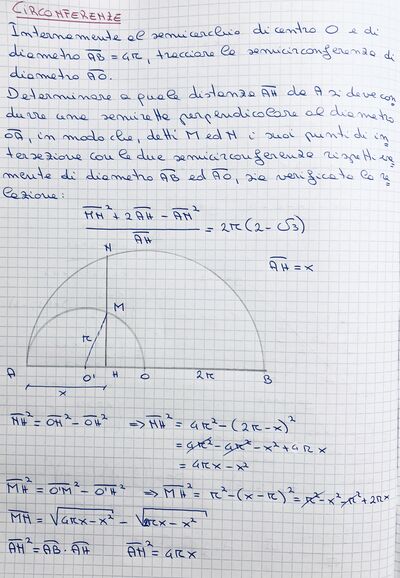 CIRCONFERENZE
Internamente al semicerchio di centro O e di
diametro AB = 4r, tracciare la semicirconferenza di
diametro AO.
Determinare a quale distanza AH da A si deve con
durre una semiretta perpendicolare al diametro
OA, in modo che, detti M ed N i suoi punti di in
tersezione con le due semicirconferenze rispettiva
mente di diametro AB ed AO, sia verificata la re
lazione:
MN² + 2AH - AM² / AH = 2r(2-√3)
AH = x
N
M
r
A O' H O 2r B
x
NH² = ON² - OH² => NH² = 4r² - (2r-x)²
= 4r² - 4r² - x² + 4rx
= 4rx - x²
MH² = O'M² - O'H² => MH² = r² - (x-r)² = r² - x² - r² + 2rx
MN = √4rx-x² - √2rx-x²
AN² = AB · AH AN² = 4rx